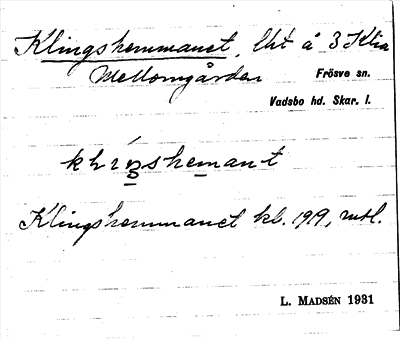 Klingshemmanet, lht å 3 Klia
Mellomgården
Frösve sn.
Vadsbo hd. Skar. l.
Klingshemmanet kl. 1919, mtl.
L. MADSÉN 1931